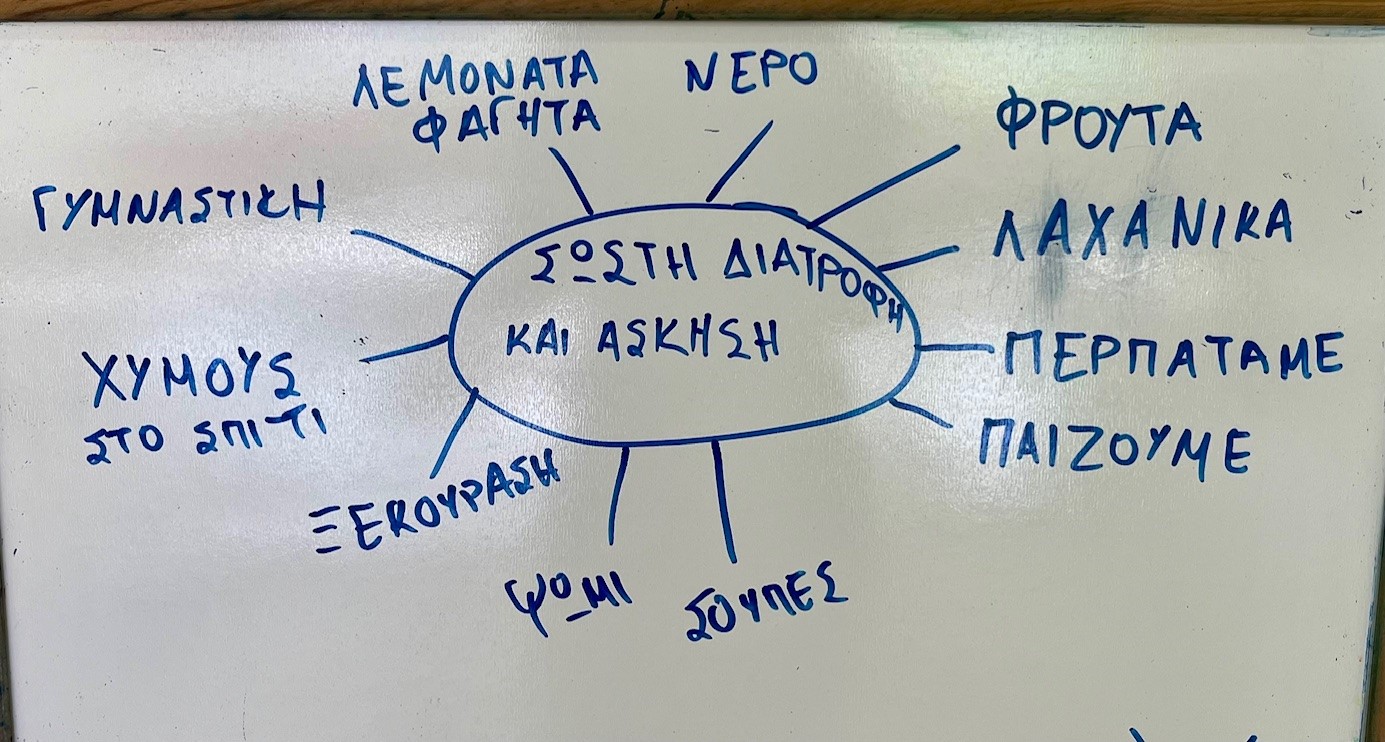 ΛΕΜΟΝΑΤΑ
ΦΑΓΗΤΑ
ΝΕΡΟ
ΦΡΟΥΤΑ
ΓΥΜΝΑΣΤΙΚΗ
ΛΑΧΑΝΙΚΑ
ΣΩΣΤΗ ΔΙΑΤΡΟΦΗ
ΚΑΙ ΑΣΚΗΣΗ
ΠΕΡΠΑΤΑΜΕ
ΧΥΜΟΥΣ
ΣΤΟ ΣΠΙΤΙ
ΠΑΙΖΟΥΜΕ
ΞΕΚΟΥΡΑΣΗ
ΨΩΜΙ
ΣΟΥΠΕΣ